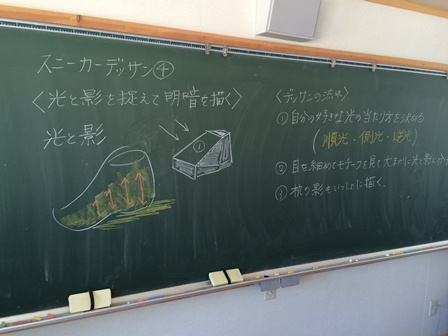 スニーカーデッサン④
〈光と影を捉えて明暗を描く〉
光と影
①
〈デッサンの流れ〉
①自分の好きな光の当たり方を決める
(順光・側光・逆光)
②目を細めてモチーフを見て大まかに光と影に分け
③机の影もいっしょに描く。